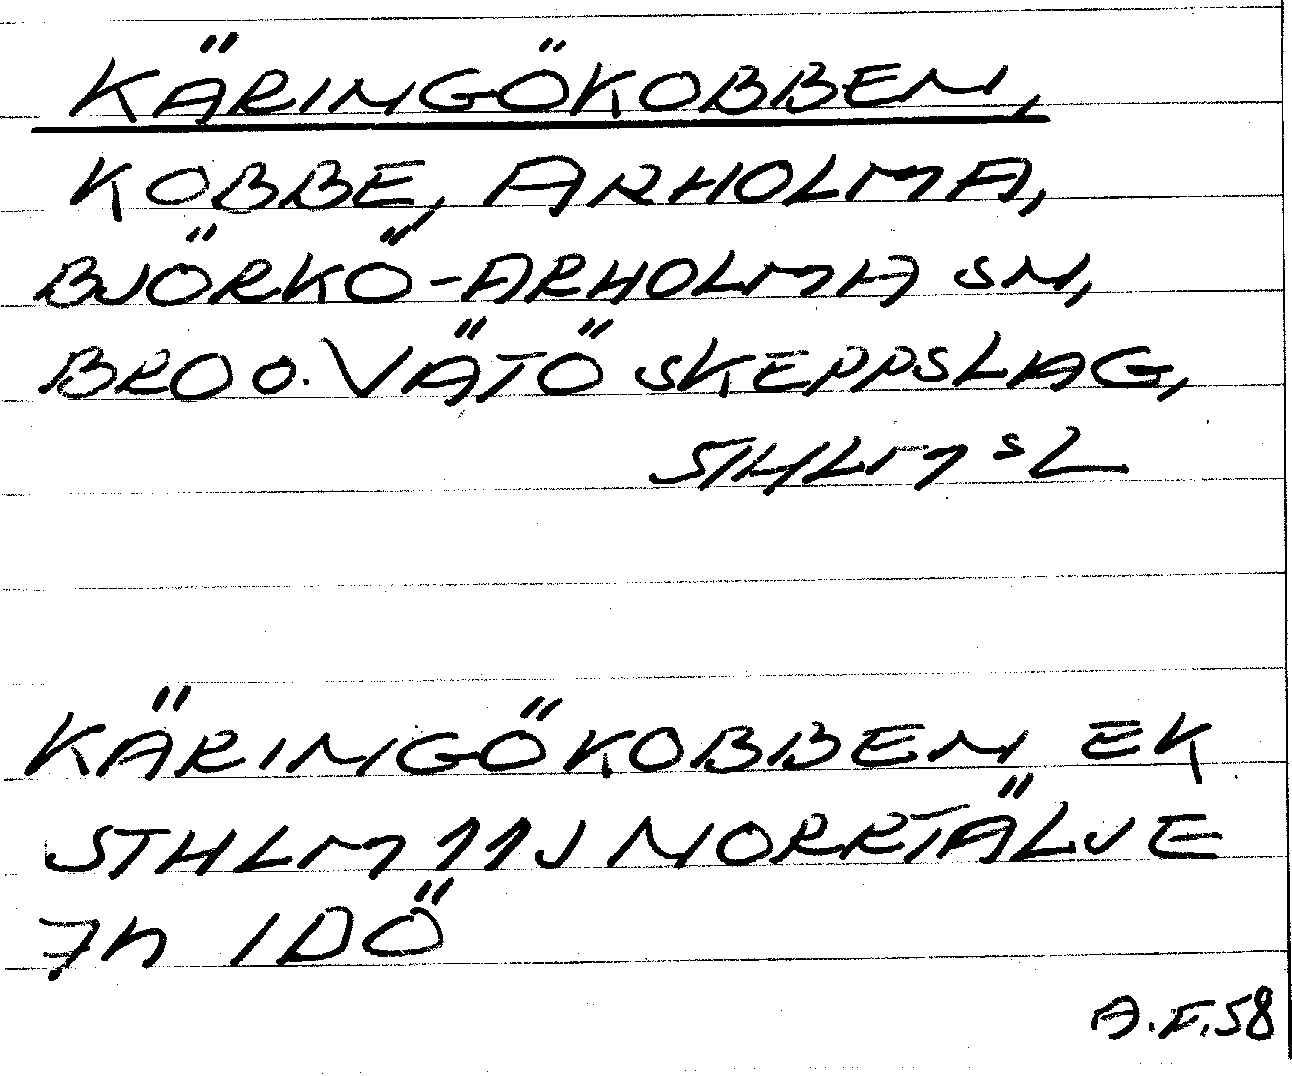 KÄRINGÖKOBBEN,
KOBBE, ARHOLMA,
BJÖRKÖ-ARHOLMA SN,
BRO O. VÄTÖ SKEPPSLAG,
STHLMS L
KÄRINGÖKOBBEN EK
STHLM 11J NORRTÄLJE
7h IDÖ
A.F.58